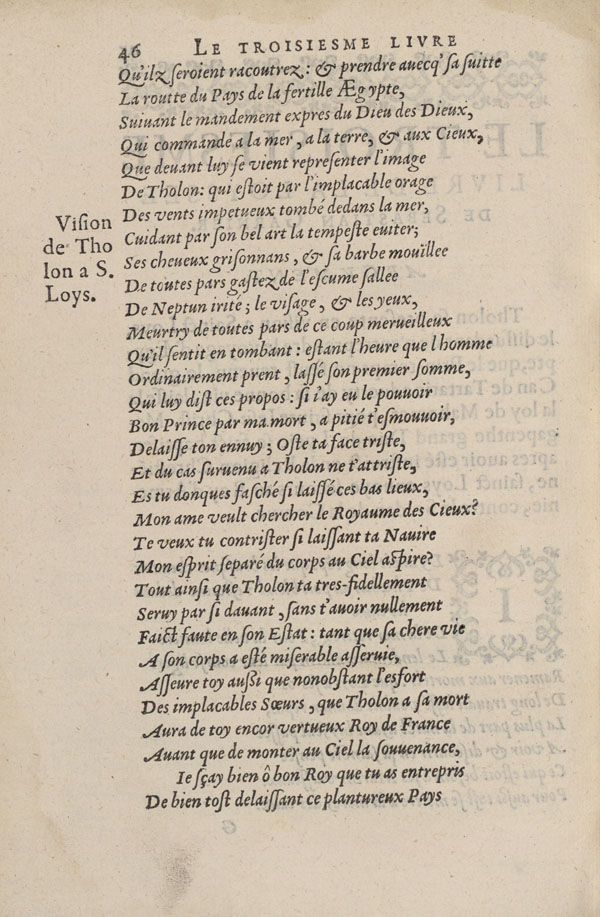 46 LE TROISIESME LIVRE
Qu'ilz seroient racoutrez: & prendre auecq' sa suitte
La routte du Pays de la fertille Ægypte,
Suiuant le mandement expres du Dieu des Dieux,
Qui commande a la mer, a la terre, & aux Cieux,
Que deuant luy se vient representer l'image
De Tholon: qui estoit par l'implacable orage
Des vents impetueux tombé dedans la mer,
Cuidant par son bel art la tempeste euiter;
Ses cheueux grisonnans, & sa barbe mouillee
De toutes pars gastez de l'escume sallee
De Neptun irité; le visage, & les yeux,
Meurtry de toutes pars de ce coup merueilleux
Qu'il sentit en tombant: estant l'heure que l'homme
Ordinairement prent, lassé son premier somme,
Qui luy dist ces propos: si i'ay eu le pouuoir
Bon Prince par ma mort, a pitié t'esmouuoir,
Delaisse ton ennuy; Oste ta face triste,
Et du cas suruenu a Tholon ne t'attriste,
Es tu donques fasché si laissé ces bas lieux,
Mon ame veult chercher le Royaume des Cieux?
Te veux tu contrister si laissant ta Nauire
Mon esprit separé du corps au Ciel aspire?
Tout ainsi que Tholon ta tres-fidellement
Seruy par si dauant, sans t'auoir nullement
Faict faute en son Estat: tant que sa chere vie
A son corps a esté miserable asseruie,
Asseure toy aussi que nonobstant l'esfort
Des implacables Sœurs, que Tholon a sa mort
Aura de toy encor vertueux Roy de France
Auant que de monter au Ciel la souuenance,
Ie sçay bien ô bon Roy que tu as entrepris
De bien tost delaissant ce plantureux Pays
Vision
de Tho
lon a S.
Loys.